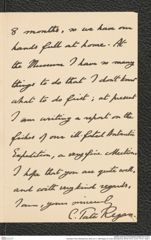 8 months, so we have our
hands full at home. At
the Museum I have so many
things to do that I don't know
what to do first; at present
I am writing a report on the
fishes of our ill fated Antarctic
Expedition, a very fine collection.
I hope that you are quite well,
and with very kind regards,
I am, yours sincerely
C. Tate Regan.